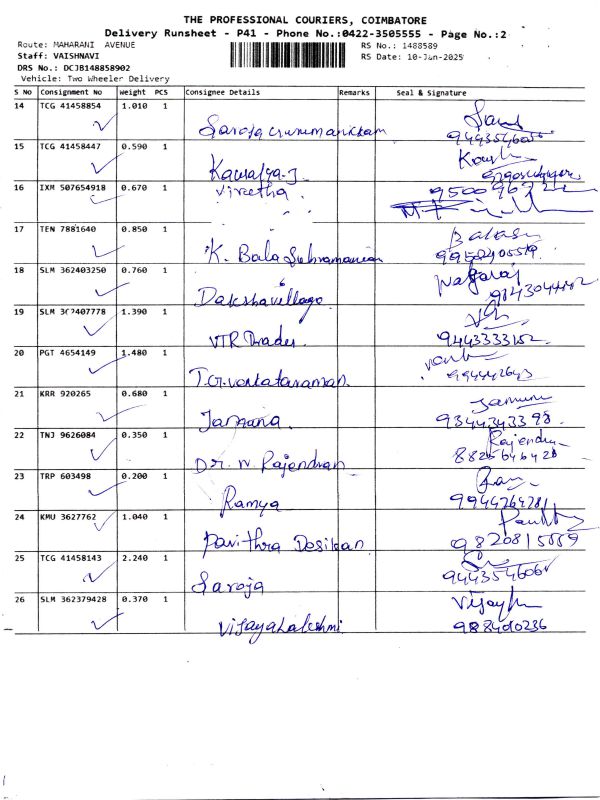 THE PROFESSIONAL COURIERS, COIMBATORE
Delivery Runsheet - P41 - Phone No.:0422-3505555 - Page No.:2
Route: MAHARANI AVENUE RS No.: 1488589
Staff: VAISHNAVI RS Date: 10-Jun-2025
DRS No.: DCJB148858902
Vehicle: Two Wheeler Delivery
S No Consignment No Weight PCS Consignee Details Remarks Seal & Signature
14 TCG 41458854 1.010 1
15 TCG 41458447 0.590 1
Kausalya.J
16 IXM 507654918 0.670 1
Vineetha
17 TEN 7881640 0.850 1
K. Bala Subramanian
18 SLM 362403250 0.760 1
Nagaraj
19 SLM 362407778 1.390 1
VTR Traders 9443333152
20 PGT 4654149 1.480 1
T.G.Venkataraman
21 KRR 920265 0.680 1
Jamuna 9344343398
22 TNJ 9626084 0.350 1
Rajendra
Dr. N. Rajendran 8825646428
23 TRP 603498 0.200 1
Ramya 9944264281
24 KMU 3627762 1.040 1
Pavithra Desikan
25 TCG 41458143 2.240 1
Saroja
26 SLM 362379428 0.370 1
VijayaLakshmi